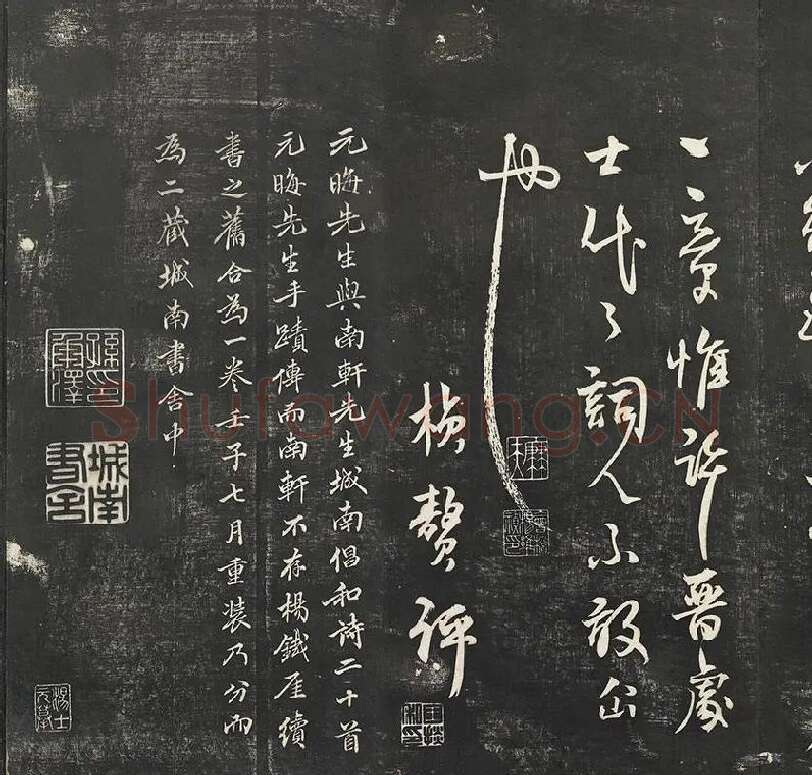 一章惟許晋處
士代〻詞人不敢出
也
楨贅評
元晦先生與南軒先生城南倡和詩二十首
元晦先生手蹟傳而南軒不存楊鐵厓續
書之舊合為一卷壬子七月重装乃分而
為二藏城南書舍中
城南
書舍
Shufawang.CN